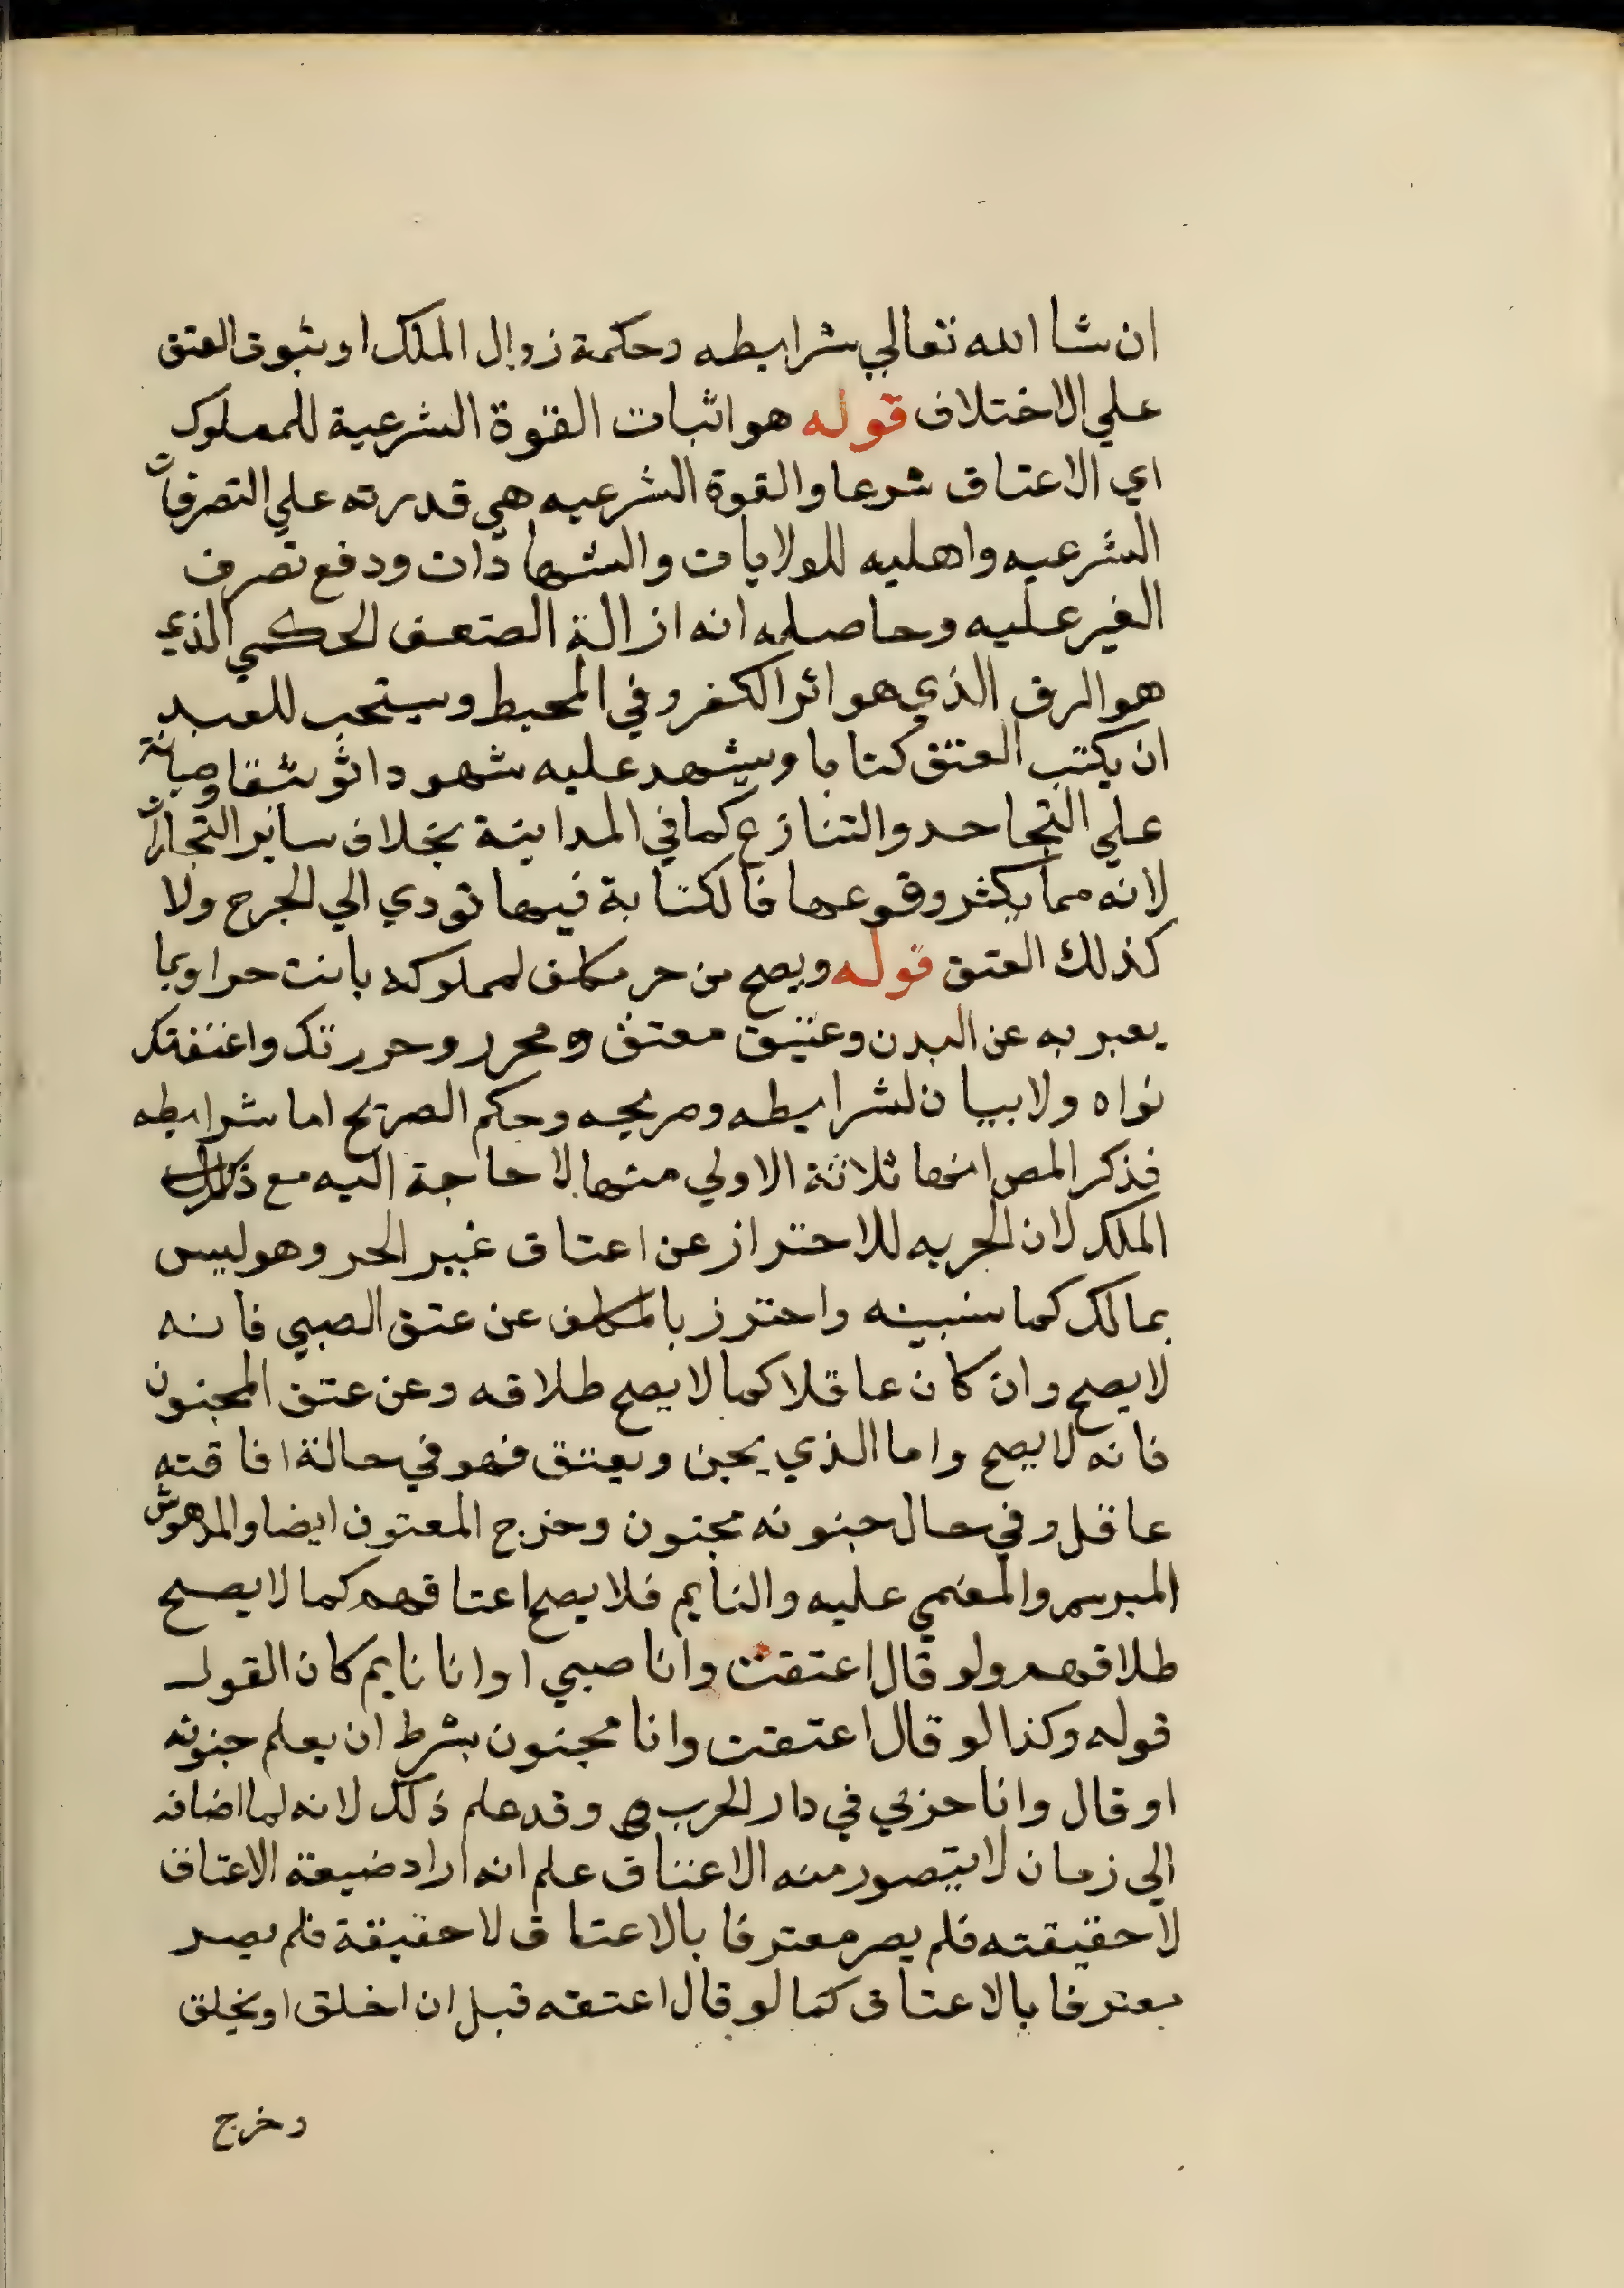 ان شا الله تعالي شرايطه وحكمة زوال الملك او ثبوت العتق
علي الاختلاف قوله هو اثبات القوة الشرعية للمملوك
اي الاعتاق شرعا والقوة الشرعيه هي قدرته علي التصرفات
الشرعيه واهليه للولايات والشهادات ودفع تصرف
الغير عليه وحاصله انه ازالة الضعف الحكمي الذي
هو الرق الذي هو اثر الكفر وفي المحيط ويستحب للعبد
ان يكتب العتق كتابا ويشهد عليه شهودا توثقا وصيانة
علي التجاحد والتنازع كما في المداينة بخلاف ساير التجارات
لانه مما يكثر وقوعها فالكتابة فيها تودي الي الحرج ولا
كذلك العتق قوله ويصح من حر مكلف لمملوكه بانت حر او بما
يعبر به عن البدن وعتيق معتق ومحرر وحررتك واعتقتك
نواه ولا بيان لشرايطه وصريحه وحكم الصريح اما شرايطه
فذكر المص انها ثلاثة الاولي منها لا حاجة اليه مع ذكر
الملك لان الحريه للاحتراز عن اعتاق غير الحر وهو ليس
بمالك كما سنبينه واحترز بالمكلف عن عتق الصبي فانه
لا يصح وان كان عاقلا كما لا يصح طلاقه وعن عتق المجنون
فانه لا يصح واما الذي يجن ويعتق فهو في حالة افاقته
عاقل وفي حال جنونه مجنون وخرج المعتوه ايضا والمدهوش
المبرسم والمغمي عليه والنايم فلا يصح اعتاقهم كما لا يصح
طلاقهم ولو قال اعتقت وانا صبي او انا نايم كان القول
قوله وكذا لو قال اعتقت وانا مجنون بشرط ان يعلم جنونه
او قال وانا حربي في دار الحرب وقد علم ذلك لانه لما اضافه
الي زمان لا يتصور منه الاعتاق علم انه اراد ضيعة الاعتاق
لا حقيقته فلم يصر معترفا بالاعتاق لا حقيقة فلم يصر
معترفا بالاعتاق كما لو قال اعتقه قبل ان اخلق او يخلق
وخرج